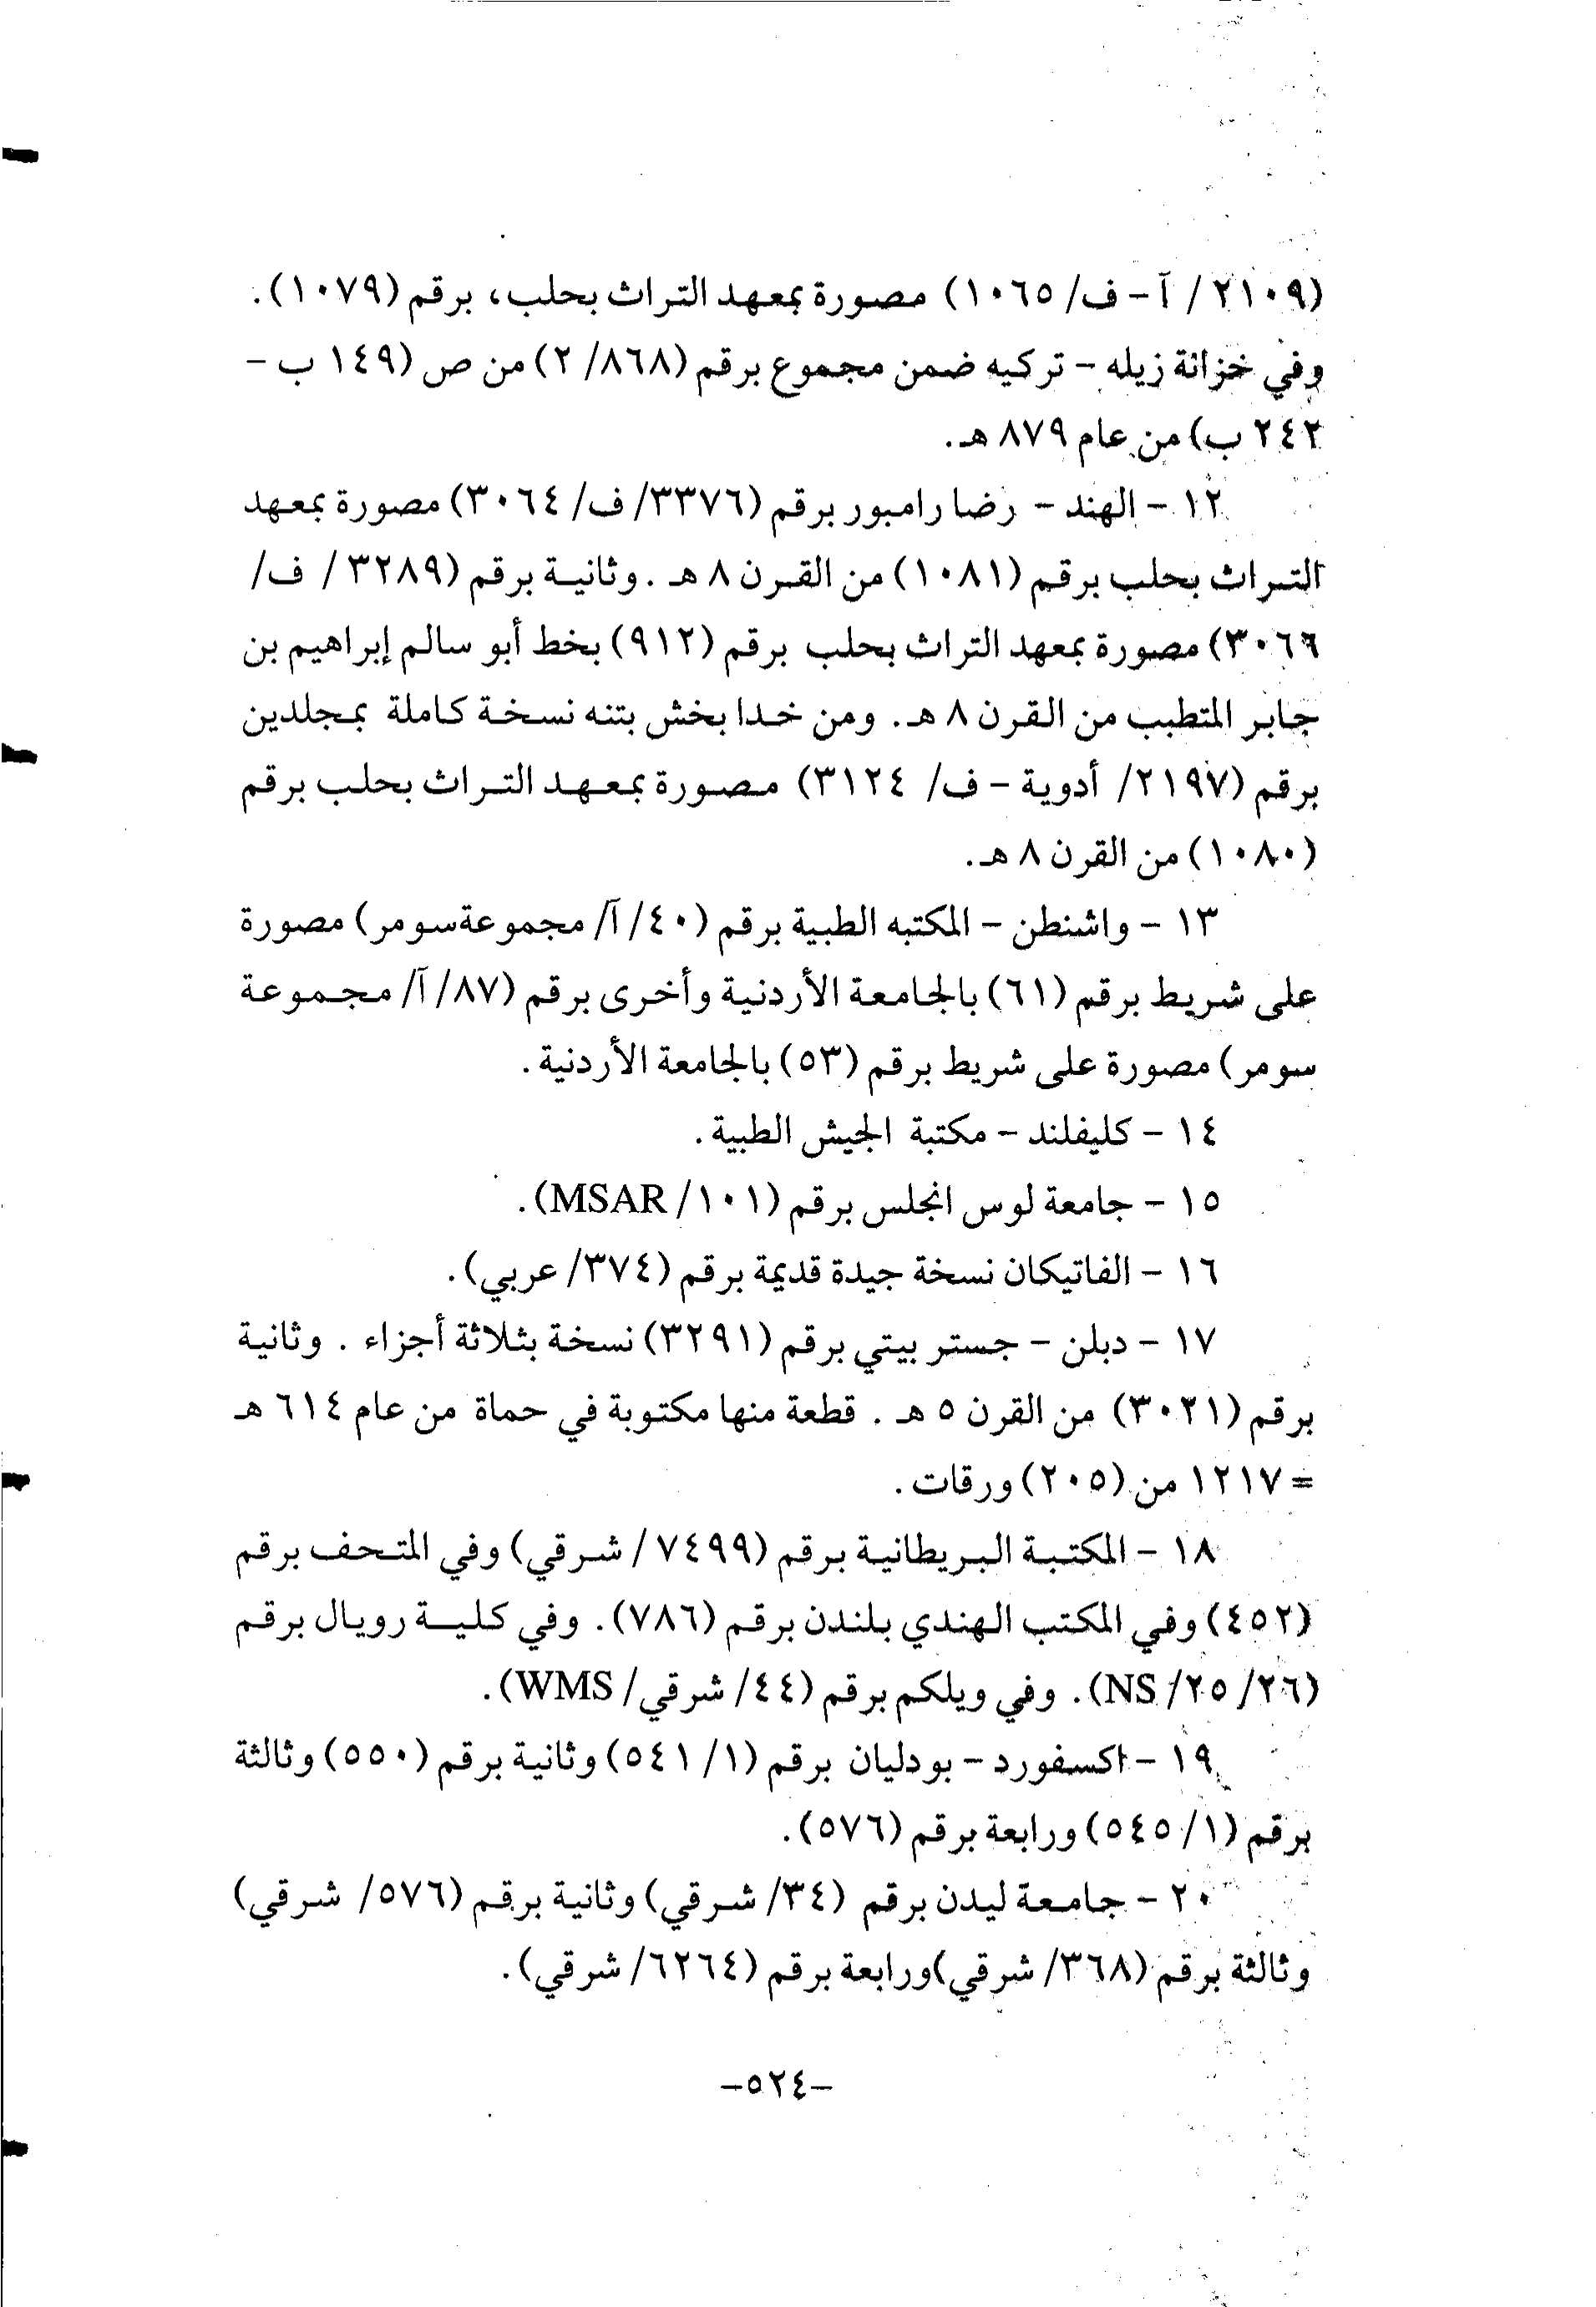 (٢١٠٩/ آ - ف/ ١٠٦٥) مصورة بمعهد التراث بحلب، برقم (١٠٧٩).
وفي خزانة زيله - تركيه ضمن مجموع برقم (٨٦٨/ ٢) من ص (١٤٩ ب -
٢٤٢ ب) من عام ٨٧٩ هـ.
١٢ - الهند - رضا رامبور برقم (٣٣٧٦/ ف/ ٣٠٦٤) مصورة بمعهد
التراث بحلب برقم (١٠٨١) من القرن ٨ هـ. وثانية برقم (٣٢٨٩/ ف/
٣٠٦٦) مصورة بمعهد التراث بحلب برقم (٩١٢) بخط أبو سالم إبراهيم بن
جابر المتطبب من القرن ٨ هـ. ومن خدا بخش بتنه نسخة كاملة بمجلدين
برقم (٢١٩٧/ أدوية - ف/ ٣١٢٤) مصورة بمعهد التراث بحلب برقم
(١٠٨٠) من القرن ٨ هـ.
١٣ - واشنطن - المكتبه الطبية برقم (٤٠/ آ/ مجموعة سومر) مصورة
على شريط برقم (٦١) بالجامعة الأردنية وأخرى برقم (٨٧/ آ/ مجموعة
سومر) مصورة على شريط برقم (٥٣) بالجامعة الأردنية.
١٤ - كليفلند - مكتبة الجيش الطبية.
١٥ - جامعة لوس انجلس برقم (١٠١/ MSAR).
١٦ - الفاتيكان نسخة جيدة قديمة برقم (٣٧٤/ عربي).
١٧ - دبلن - جستر بيتي برقم (٣٢٩١) نسخة بثلاثة أجزاء. وثانية
برقم (٣٠٢١) من القرن ٥ هـ. قطعة منها مكتوبة في حماة من عام ٦١٤ هـ
= ١٢١٧ من (٢٠٥) ورقات.
١٨ - المكتبة البريطانية برقم (٧٤٩٩/ شرقي) وفي المتحف برقم
(٤٥٢) وفي المكتب الهندي بلندن برقم (٧٨٦). وفي كلية رويال برقم
(٢٦/ ٢٥/ NS). وفي ويلكم برقم (٤٤/ شرقي/ WMS).
١٩ - اكسفورد - بودليان برقم (١/ ٥٤١) وثانية برقم (٥٥٠) وثالثة
برقم (١/ ٥٤٥) ورابعة برقم (٥٧٦).
٢٠ - جامعة ليدن برقم (٣٤/ شرقي) وثانية برقم (٥٧٦/ شرقي)
وثالثة برقم (٣٦٨/ شرقي) ورابعة برقم (٦٢٦٤/ شرقي).
-٥٢٤-